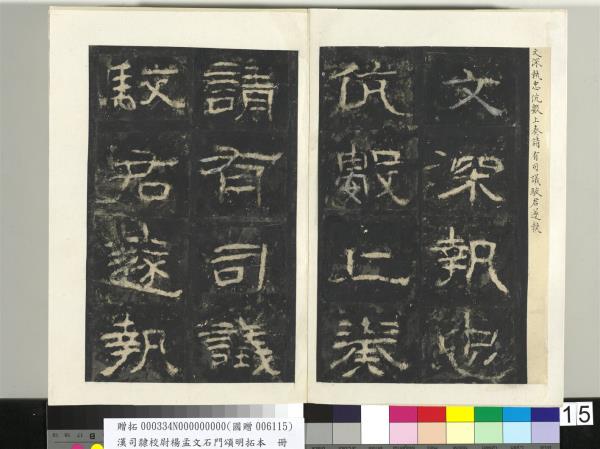 文深執忠伉數上奏請有司議駮君遂執
文深執忠
伉數上奏
請有司議
駮君遂執
15
贈拓 000334N000000000(國贈 006115)
漢司隸校尉楊孟文石門頌明拓本 冊